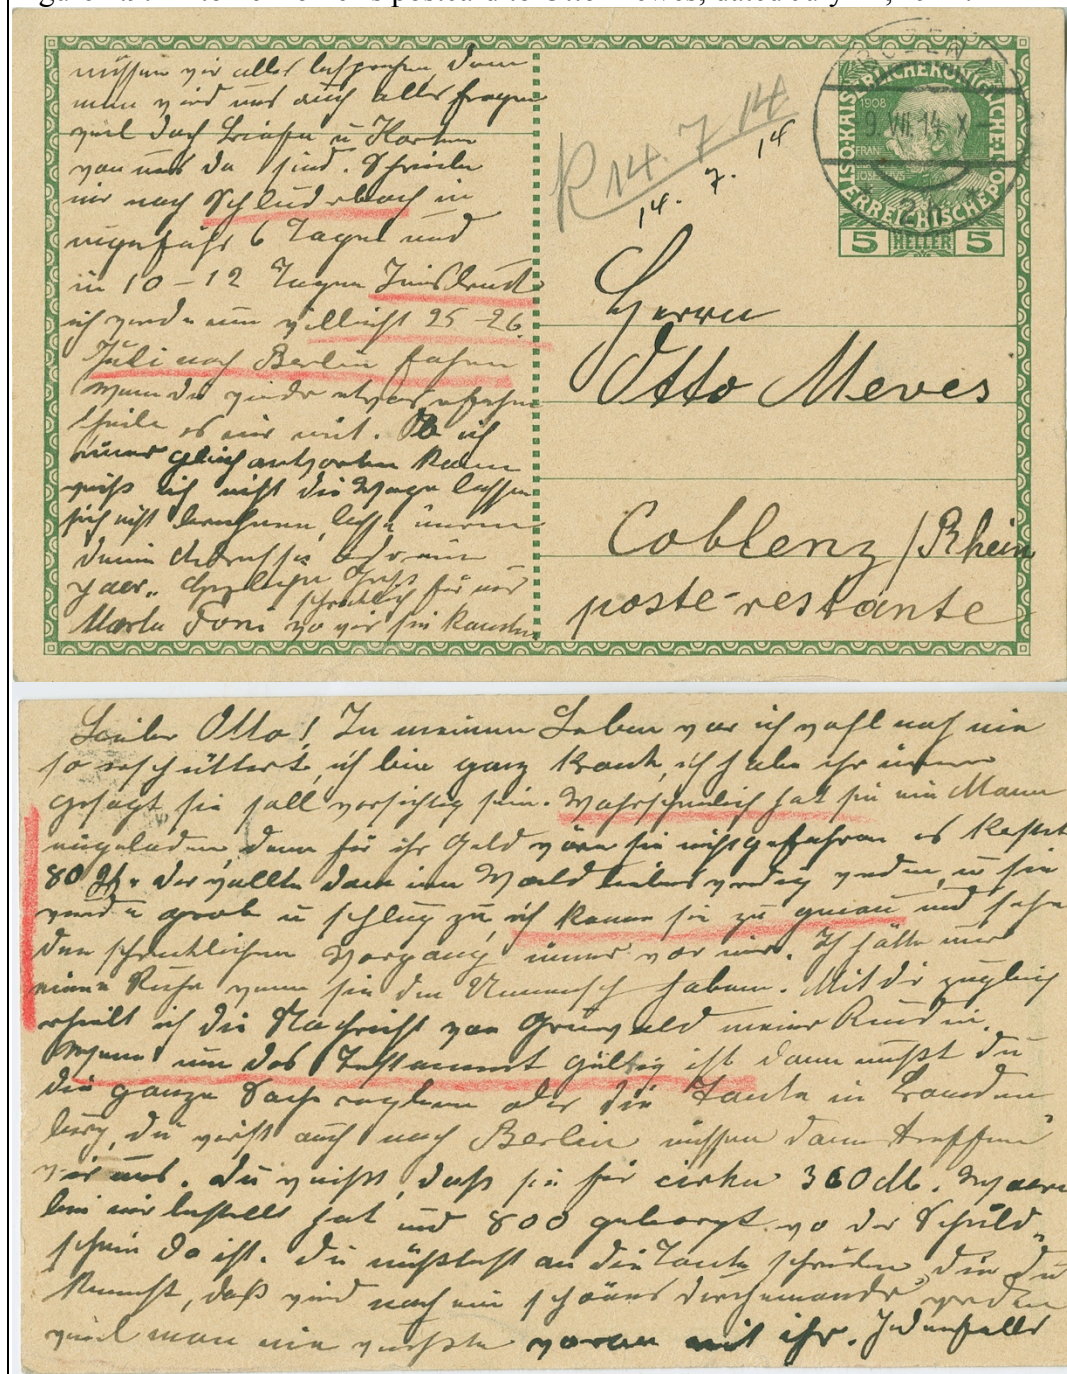 müssen wir alles besprechen denn
man wird uns auch alles fragen
weil doch Briefe u Karten
von uns da sind. Schreibe
mir nach Schluderbach in
ungefähr 6 Tagen und
in 10 – 12 Tagen Innsbruck
ich werde nun vielleicht 25 – 26.
Juli nach Berlin fahren
wenn du wieder etwas erfahren
theile es mir mit. Ob ich
immer gleich antworten kann
weiß ich nicht die Wege lassen
sich nicht berechnen, lasse immer
deine Adresse
Herzliche Grüße
schrecklich für uns
Marta Toni wo wir sie kannten
R 14. 7 14
14. 7. 14
BOZEN 1
9. VII. 14 X
2
KAISERLICHE KÖNIGLICHE
ÖSTERREICHISCHE POST
1908
5 HELLER 5
Herrn
Otto Meves
Coblenz / Rhein
poste-restante
Lieber Otto! In meinem Leben war ich wohl noch nie
so erschüttert, ich bin ganz krank, ich habe ihr immer
gesagt sie soll vorsichtig sein. Wahrscheinlich hat sie ein Mann
eingeladen, denn für ihr Geld wäre sie nicht gefahren es kostet
80 M. der wollte dann im Wald werden, u sie
wurde grob u schlug zu, ich kenne sie zu genau und sehe
den schrecklichen Vorgang immer vor mir. Ich hätte nur
eine Ruhe wenn sie den Unmensch haben. Mit dir zugleich
erhielt ich die Nachricht von Grünwald meiner Kundin.
Wenn nun das Testament gültig ist dann mußt du
die ganze Sache regeln oder die Tante in Branden
burg, du wirst auch nach Berlin müssen dann treffen
wir uns. Du weißt, daß sie für cirka 360 M. Waren
bei mir bestellt hat und 800 geborgt. wo der Schuld-
schein da ist. Du müßtest an die Tante schreiben, die du
kennst, daß wird noch ein schönes durcheinander werden
weil man nie wußte woran mit ihr. Jedenfalls